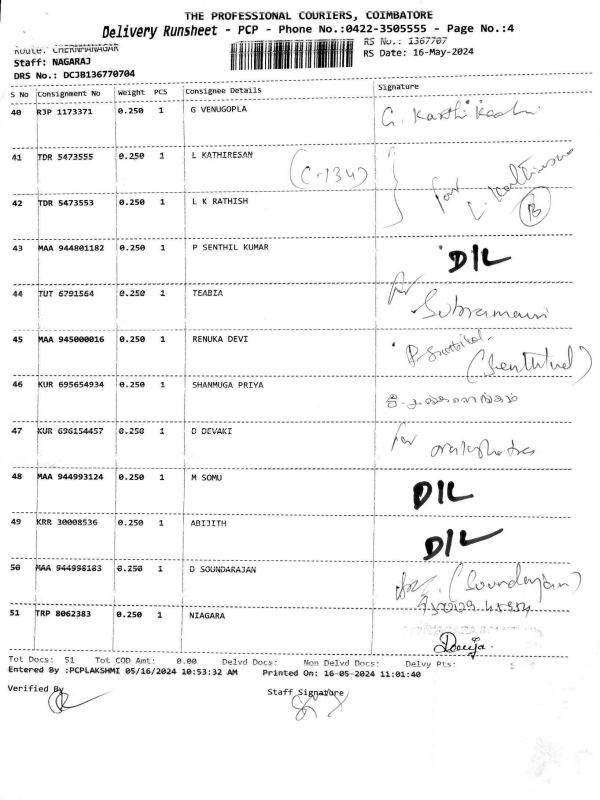 THE PROFESSIONAL COURIERS, COIMBATORE
Delivery Runsheet - PCP - Phone No.:0422-3505555 - Page No.:4
Route: CHERNMANAGAR RS No.: 1367707
Staff: NAGARAJ RS Date: 16-May-2024
DRS No.: DCJB136770704
S No Consignment No Weight PCS Consignee Details Signature
40 RJP 1173371 0.250 1 G VENUGOPLA G. Karthikeahi
41 TDR 5473555 0.250 1 L KATHIRESAN (C-134) for
42 TDR 5473553 0.250 1 L K RATHISH B
43 MAA 944801182 0.250 1 P SENTHIL KUMAR D/L
44 TUT 6791564 0.250 1 TEABIA for Subramani
45 MAA 945000016 0.250 1 RENUKA DEVI
46 KUR 695654934 0.250 1 SHANMUGA PRIYA
47 KUR 696154457 0.250 1 D DEVAKI for
48 MAA 944993124 0.250 1 M SOMU D/L
49 KRR 30008536 0.250 1 ABIJITH D/L
50 MAA 944998183 0.250 1 D SOUNDARAJAN (Soundarajan)
51 TRP 8062383 0.250 1 NIAGARA
Tot Docs: 51 Tot COD Amt: 0.00 Delvd Docs: Non Delvd Docs: Delvy Pts:
Entered By :PCPLAKSHMI 05/16/2024 10:53:32 AM Printed On: 16-05-2024 11:01:40
Verified By Staff Signature